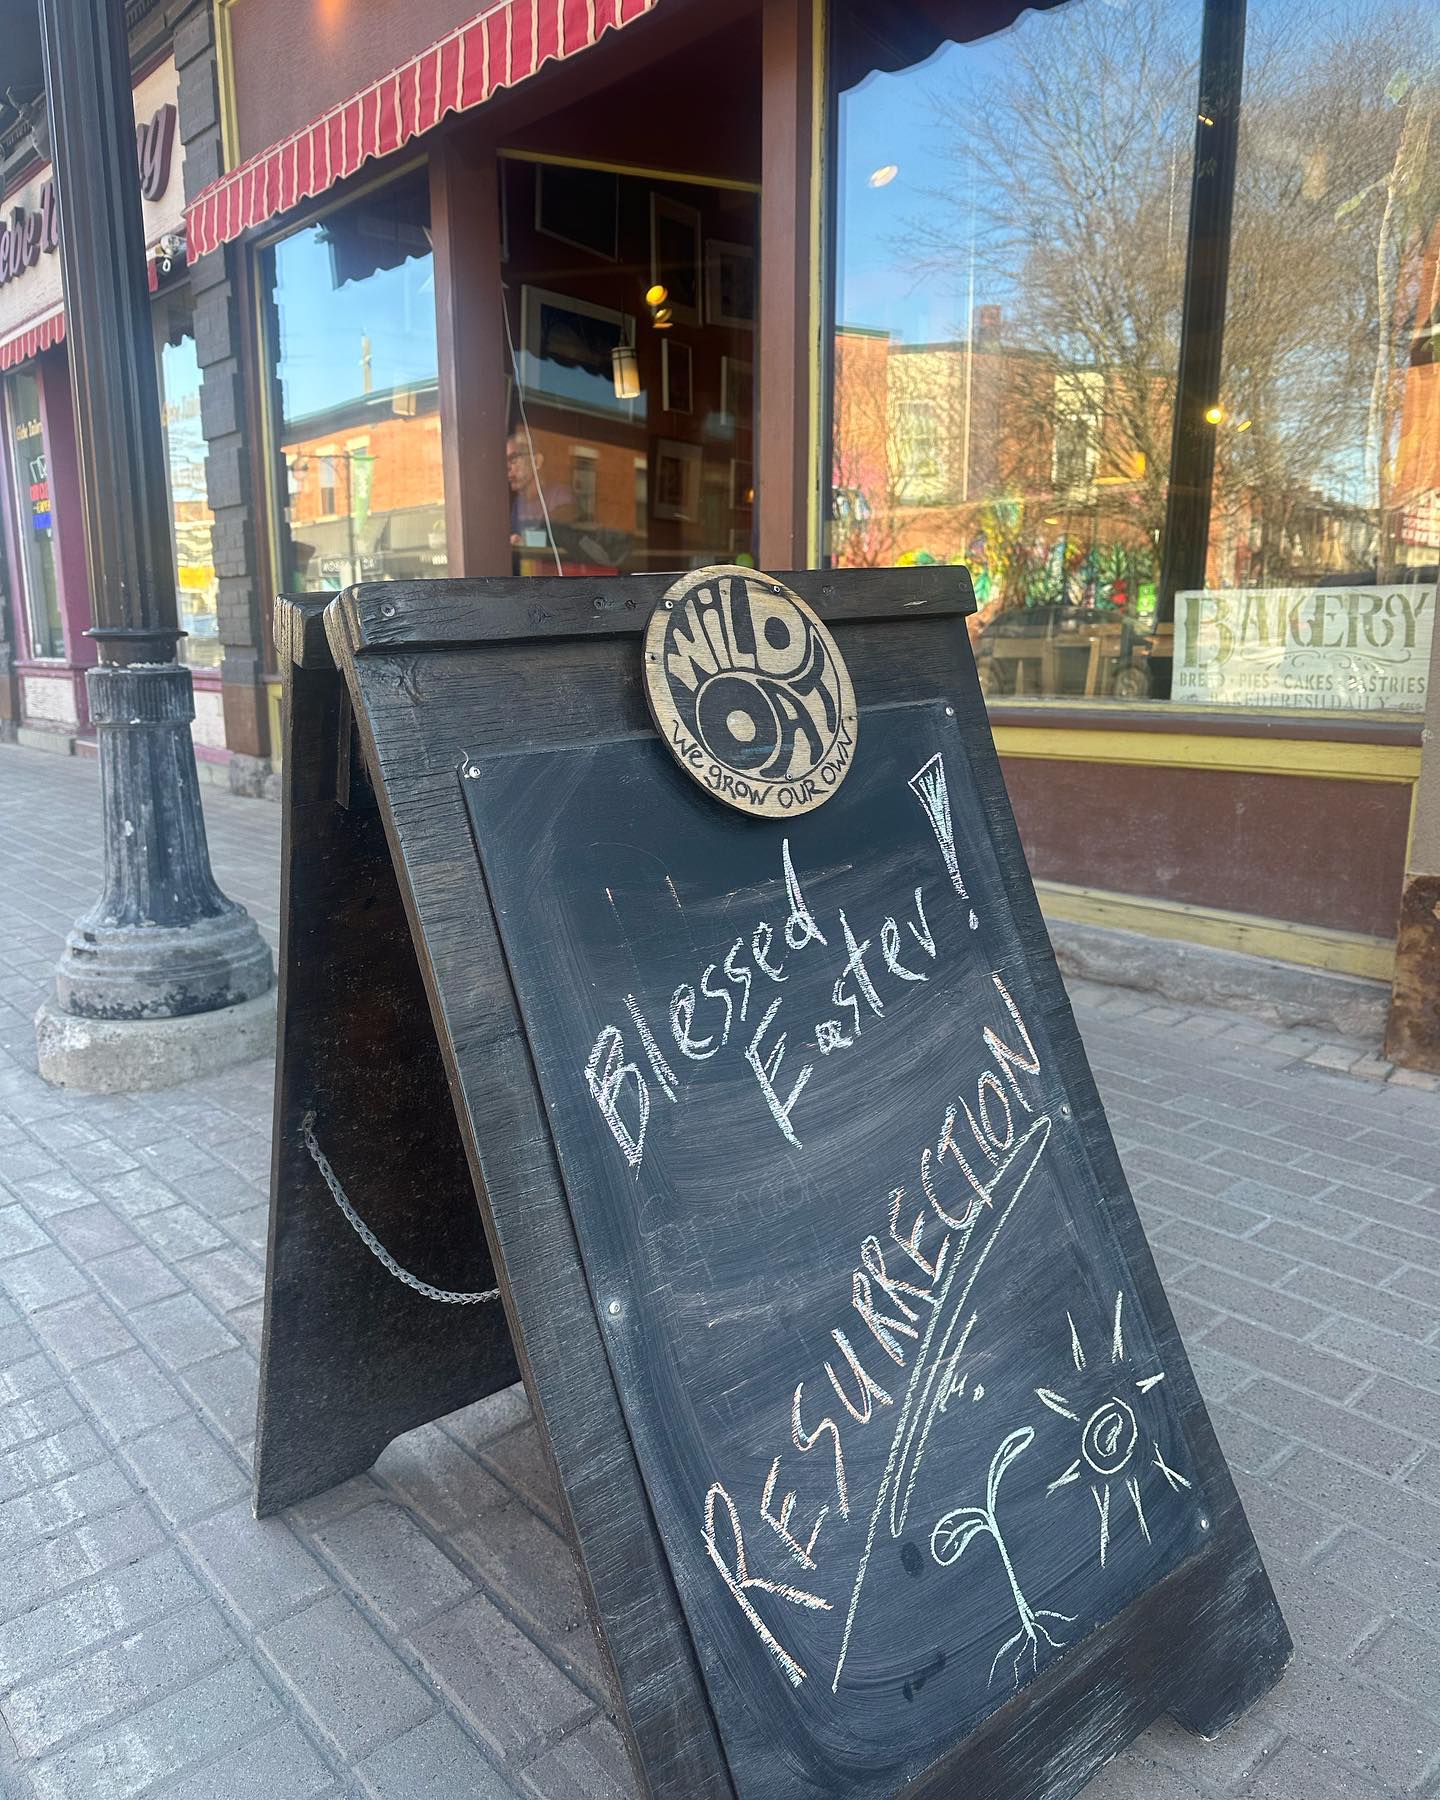 WILD
OAT
We GROW OUR OWN
BAKERY
BREAD · PIES · CAKES · PASTRIES
BAKED FRESH DAILY
Blessed
Easter!
RESURRECTION